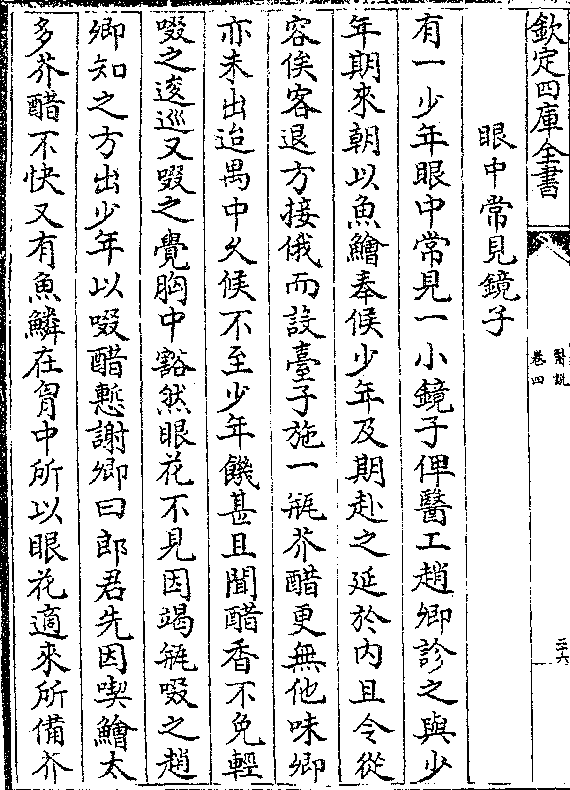 欽定四庫全書
醫說
卷四
三十六
眼中常見鏡子
有一少年眼中常見一小鏡子俾醫工趙卿診之與少
年期來朝以魚鱠奉候少年及期赴之延於內且令從
容俟客退方接俄而設臺子施一瓶芥醋更無他味卿
亦未出迨禺中久候不至少年饑甚且聞醋香不免輕
啜之逡巡又啜之覺胸中豁然眼花不見因竭瓶啜之趙
卿知之方出少年以啜醋慙謝卿曰郎君先因喫鱠太
多芥醋不快又有魚鱗在胷中所以眼花適來所備芥